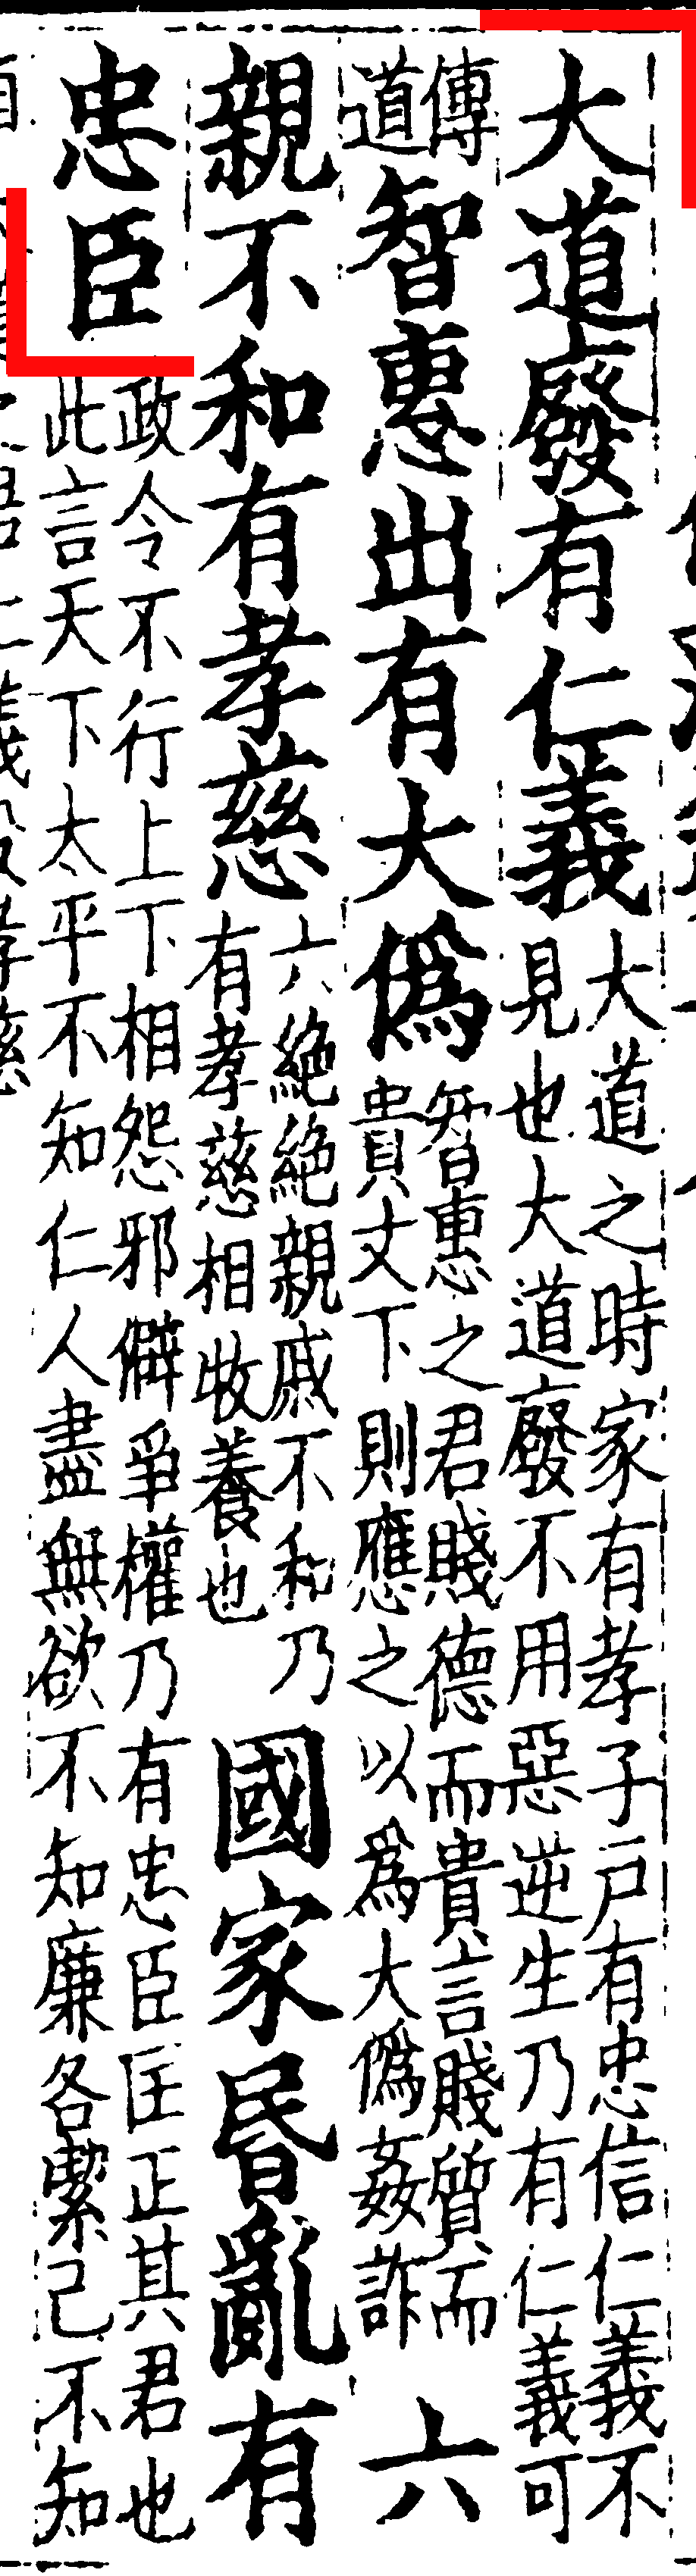 大道廢有仁義大道之時家有孝子戸有忠信仁義不
見也大道廢不用惡逆生乃有仁義可
傳
道智惠出有大僞智惠之君賤德而貴言賤質而
貴文下則應之以爲大僞姦詐六
親不和有孝慈六絶絶親戚不和乃
有孝慈相收養也國家昬亂有
忠臣政令不行上下相怨邪僻爭權乃有忠臣匡正其君也
此言天下太平不知仁人盡無欲不知廉各絜己不知